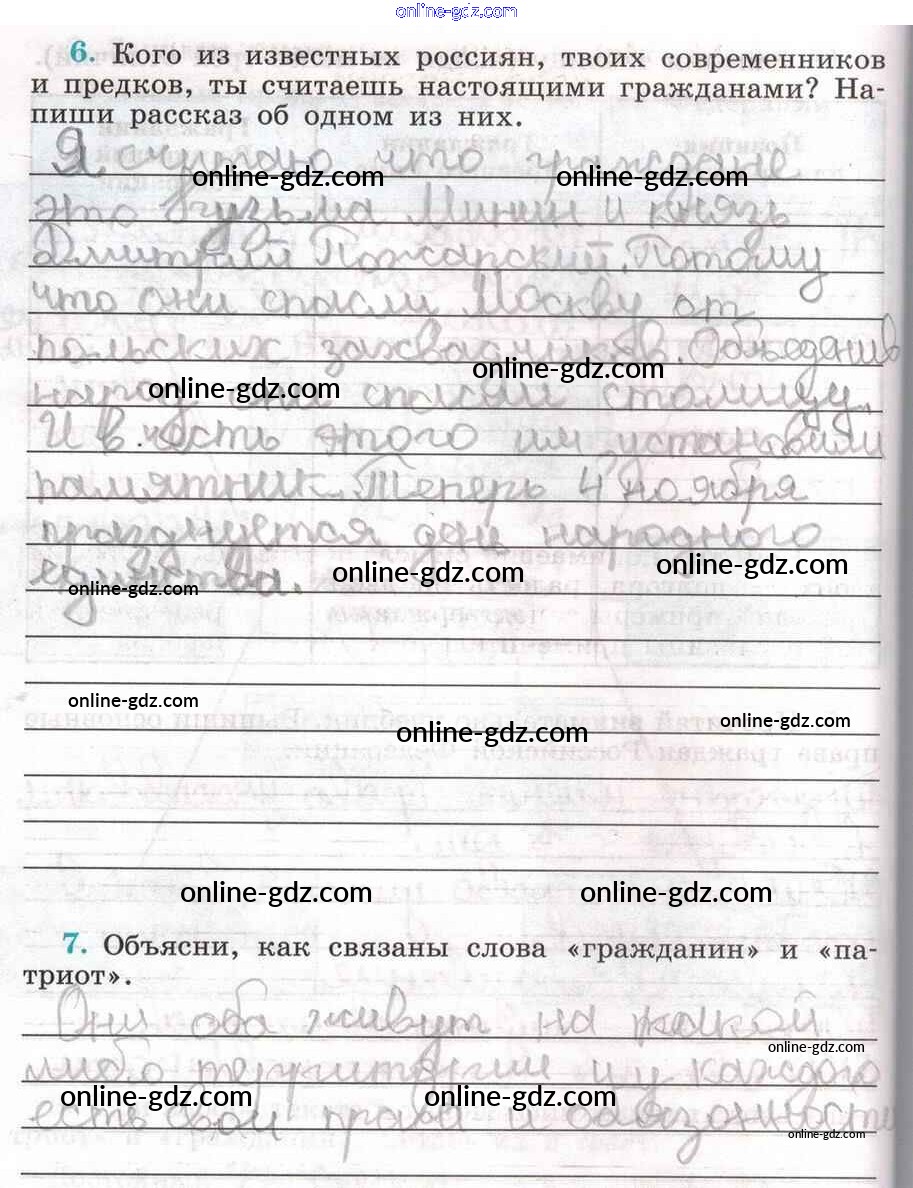 online-gdz.com
6. Кого из известных россиян, твоих современников
и предков, ты считаешь настоящими гражданами? На-
пиши рассказ об одном из них.
Я считаю что граждане
online-gdz.com online-gdz.com
это Кузьма Минин и князь
Дмитрий Пожарский. Потому
что они спасли Москву от
польских захватчиков. Объеденив
online-gdz.com
народ они спасли столицу.
online-gdz.com
И в честь этого им установили
памятник. Теперь 4 ноября
празднуется день народного
единства.
online-gdz.com online-gdz.com online-gdz.com
online-gdz.com
online-gdz.com online-gdz.com
online-gdz.com online-gdz.com
7. Объясни, как связаны слова «гражданин» и «па-
триот».
Они оба живут на какой
online-gdz.com
либо территории и у каждого
online-gdz.com online-gdz.com
есть свои права и обязонности
online-gdz.com